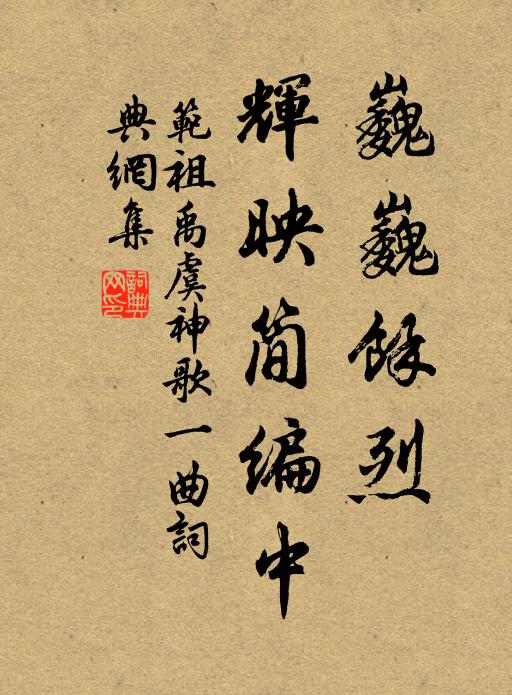 巍巍餘烈
輝映簡編中
範祖禹虞神歌一曲詞
典網集
詞典網印